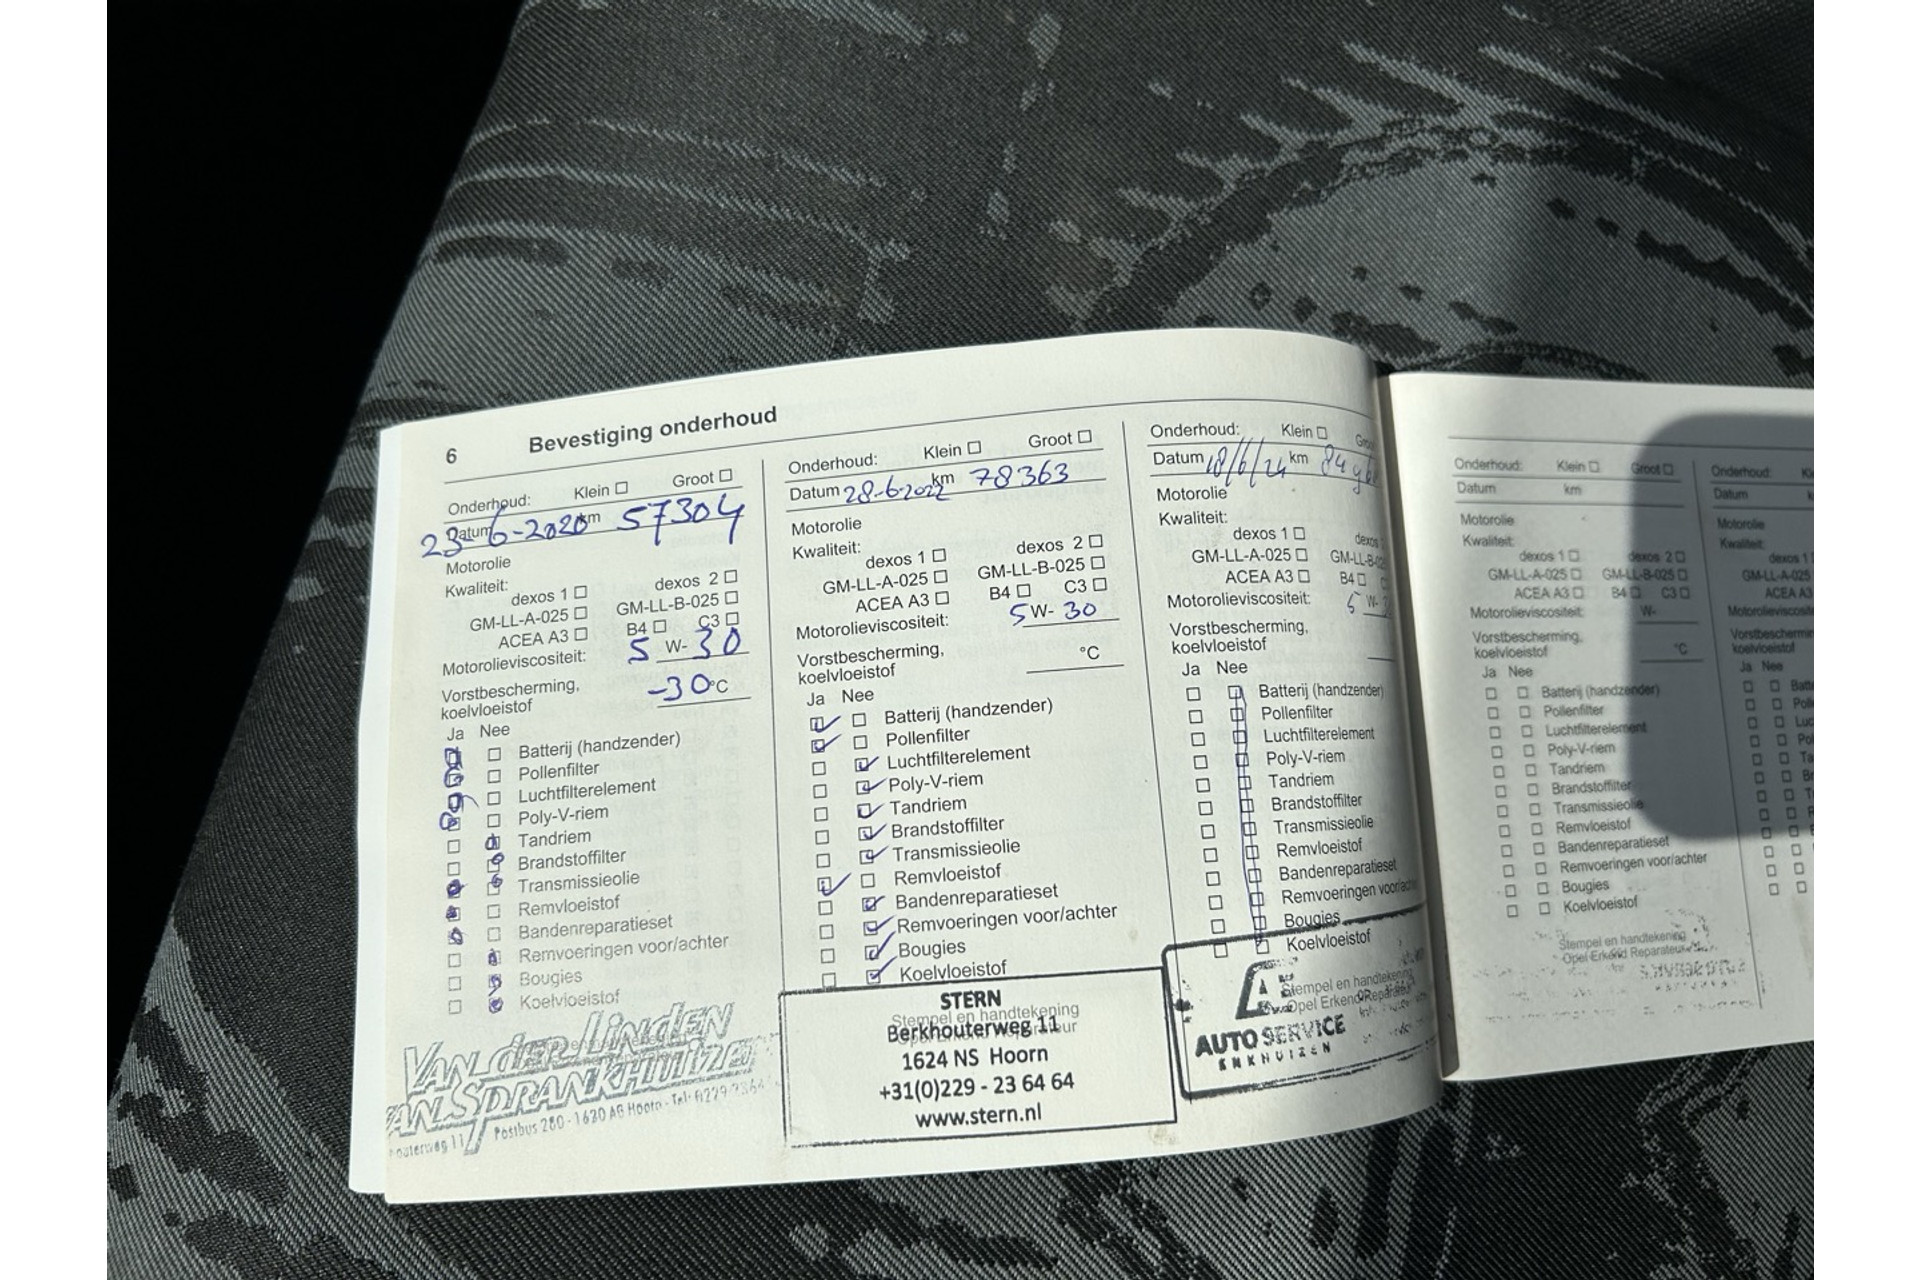 6 Bevestiging onderhoud
Onderhoud: Klein Groot
Datum 23-6-2020 km 57304
Motorolie
Kwaliteit:
dexos 1 dexos 2
GM-LL-A-025 GM-LL-B-025
ACEA A3 B4 C3
Motorolieviscositeit: 5 W- 30
Vorstbescherming,
koelvloeistof -30 °C
Ja Nee
Batterij (handzender)
Pollenfilter
Luchtfilterelement
Poly-V-riem
Tandriem
Brandstoffilter
Transmissieolie
Remvloeistof
Bandenreparatieset
Remvoeringen voor/achter
Bougies
Koelvloeistof
Van der Linden
van Sprankhuizen
Postbus 280 - 1620 AG Hoorn - Tel.
Onderhoud: Klein Groot
Datum 28-6-2022 km 78363
Motorolie
Kwaliteit:
dexos 1 dexos 2
GM-LL-A-025 GM-LL-B-025
ACEA A3 B4 C3
Motorolieviscositeit: 5 W- 30
Vorstbescherming,
koelvloeistof °C
Ja Nee
Batterij (handzender)
Pollenfilter
Luchtfilterelement
Poly-V-riem
Tandriem
Brandstoffilter
Transmissieolie
Remvloeistof
Bandenreparatieset
Remvoeringen voor/achter
Bougies
Koelvloeistof
Stempel en handtekening
STERN
Berkhouterweg 11
1624 NS Hoorn
+31(0)229 - 23 64 64
www.stern.nl
Onderhoud: Klein
Datum 18/6/24 km
Motorolie
Kwaliteit:
dexos 1 dexos
GM-LL-A-025 GM-LL-B-025
ACEA A3 B4
Motorolieviscositeit: 5 W-
Vorstbescherming,
koelvloeistof
Ja Nee
Batterij (handzender)
Pollenfilter
Luchtfilterelement
Poly-V-riem
Tandriem
Brandstoffilter
Transmissieolie
Remvloeistof
Bandenreparatieset
Remvoeringen voor/achter
Bougies
Koelvloeistof
Stempel en handtekening
Opel Erkend Reparateur
AUTOSERVICE
ENKHUIZEN
Onderhoud: Klein Groot
Datum km
Motorolie
Kwaliteit:
dexos 1 dexos 2
GM-LL-A-025 GM-LL-B-025
ACEA A3 B4 C3
Motorolieviscositeit: W-
Vorstbescherming,
koelvloeistof °C
Ja Nee
Batterij (handzender)
Pollenfilter
Luchtfilterelement
Poly-V-riem
Tandriem
Brandstoffilter
Transmissieolie
Remvloeistof
Bandenreparatieset
Remvoeringen voor/achter
Bougies
Koelvloeistof
Stempel en handtekening
Opel Erkend Reparateur
Onderhoud:
Datum
Motorolie
Kwaliteit:
dexos 1
GM-LL-A-025
ACEA A3
Vorstbescherming
koelvloeistof
Ja Nee